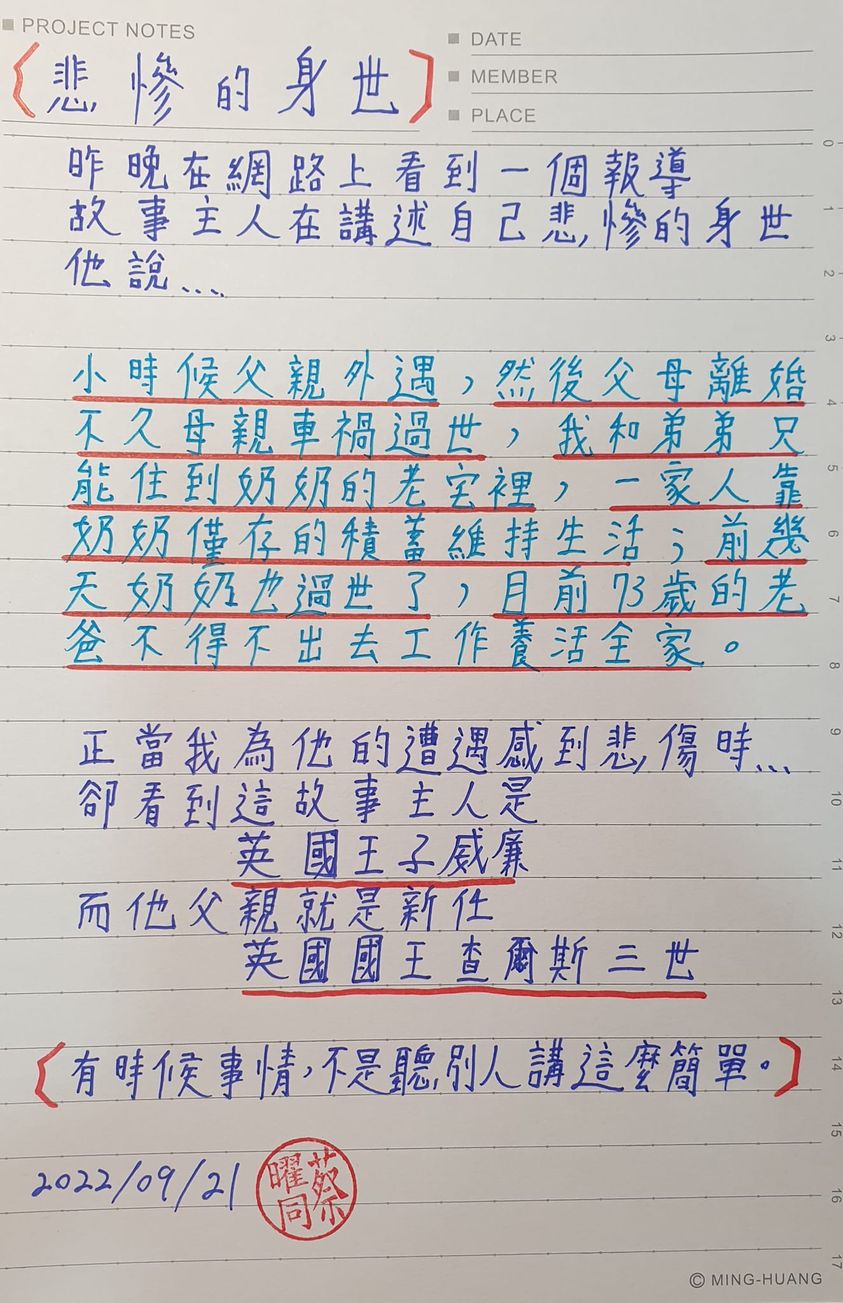 PROJECT NOTES
DATE
MEMBER
PLACE
〔悲慘的身世〕
昨晚在網路上看到一個報導
故事主人在講述自己悲慘的身世
他說....
小時候父親外遇，然後父母離婚
不久母親車禍過世，我和弟弟只
能住到奶奶的老宅裡，一家人靠
奶奶僅存的積蓄維持生活；前幾
天奶奶也過世了，目前73歲的老
爸不得不出去工作養活全家。
正當我為他的遭遇感到悲傷時...
卻看到這故事主人是
英國王子威廉
而他父親就是新任
英國國王查爾斯三世
〔有時候事情，不是聽別人講這麼簡單。〕
2022/09/21
蔡曜同
0
1
2
3
4
5
6
7
8
9
10
11
12
13
14
15
16
17
© MING-HUANG